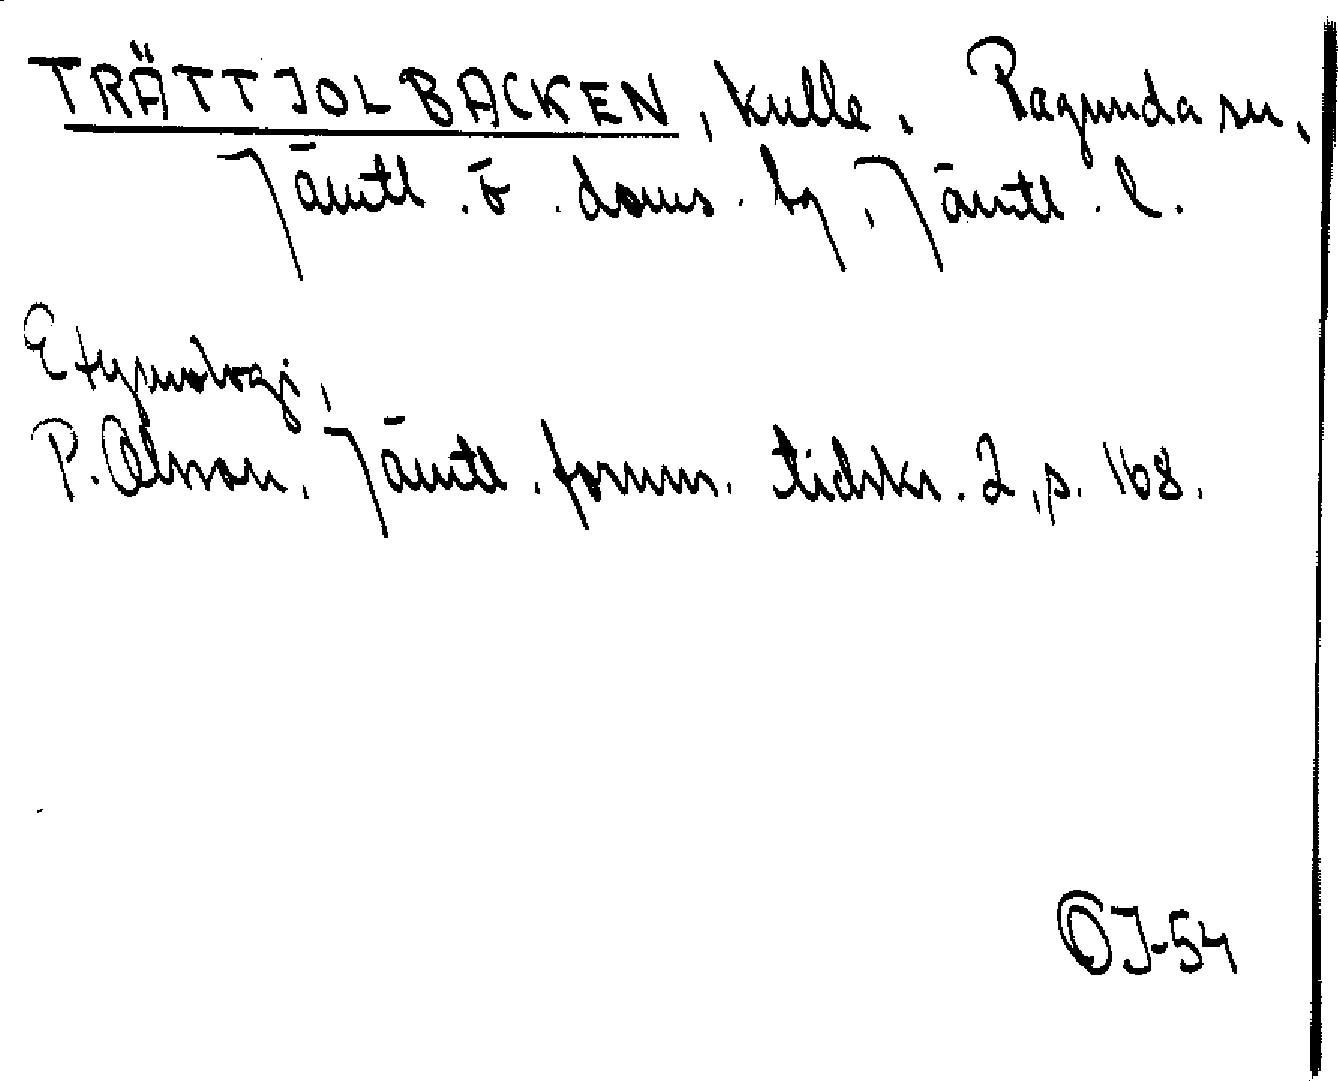 TRÄTTJOLBACKEN, kulle. Ragunda sn,
Jämtl. ö. doms. bg, Jämtl. l.
Etymologi,
P. Olsson, Jämtl. fornm. tidskr. 2, p. 168.
OJ-54